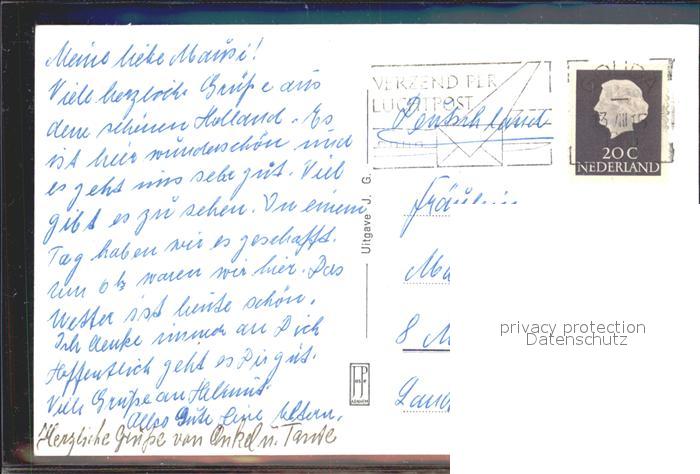 Meine liebe Mausi!
Viele herzliche Grüße aus
dem schönen Holland. Es
ist hier wunderschön und
es geht uns sehr gut. Viel
gibt es zu sehen. In einem
Tag haben wir es geschafft.
um 6 h waren wir hier. Das
Wetter ist heute schön.
Ich denke immer an Dich
Hoffentlich geht es Dir gut.
Viele Grüße an Helmut
Alles Gute Eltern.
Herzliche Grüße von Onkel u. Tante
VERZEND PER
LUCHTPOST
Deutschland
GOUDA
20 C
NEDERLAND
Uitgave J. G.
Fräulein
Ma
8 M
Land
privacy protection
Datenschutz